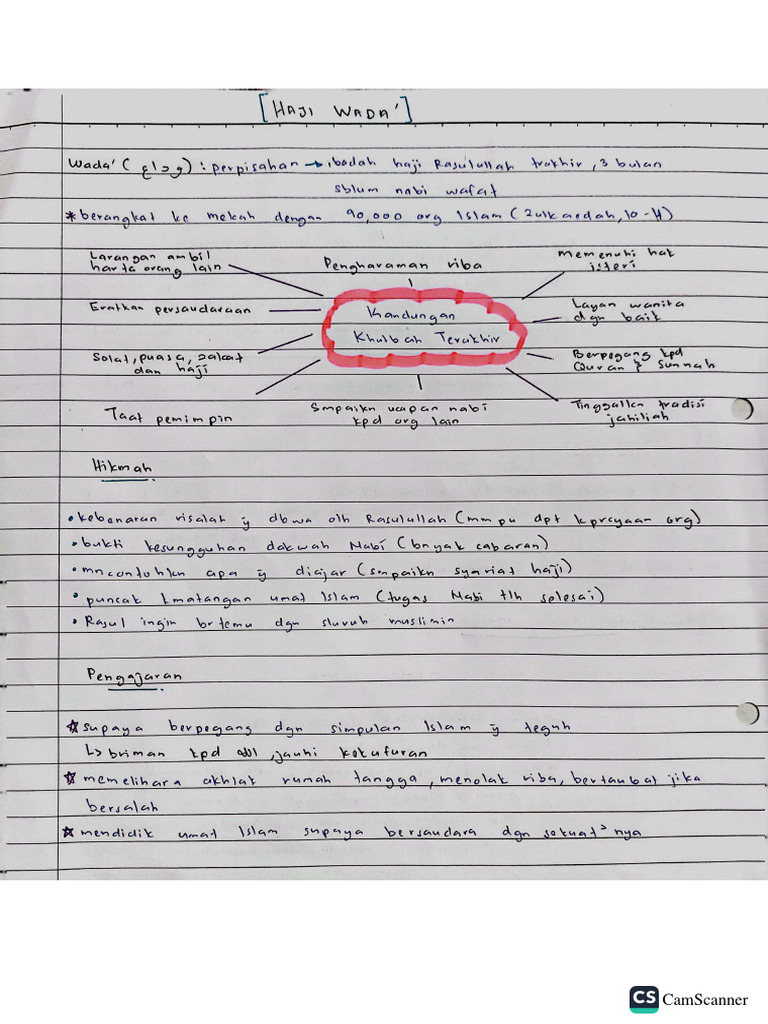 [HAJI WADA']
Wada' (وداع) : perpisahan → ibadah haji Rasulullah trakhir, 3 bulan
sblum nabi wafat
* berangkat ke mekah dengan 90,000 org Islam (Zulkaedah, 10-H)
Larangan ambil
harta orang lain
Pengharaman riba
memenuhi hak
isteri
Eratkan persaudaraan
Kandungan
Khutbah Terakhir
Layan wanita
dgn baik
Solat, puasa, zakat
dan haji
Berpegang kpd
Quran & Sunnah
Taat pemimpin
Smpaikn ucapan nabi
kpd org lain
Tinggalkn tradisi
jahiliah
Hikmah
• kebenaran risalah ÿ dbwa olh Rasulullah (mmpu dpt kprcyaan org)
• bukti kesungguhan dakwah Nabi (bnyak cabaran)
• mncontohkn apa ÿ diajar (smpaikn syariat haji)
• puncak kmatangan umat Islam (tugas Nabi tlh selesai)
• Rasul ingin brtemu dgn sluruh muslimin
Pengajaran
☆ supaya berpegang dgn simpulan Islam ÿ teguh
↳ briman kpd الله, jauhi kekufuran
☆ memelihara akhlak rumah tangga, menolak riba, bertaubat jika
bersalah
☆ mendidik umat Islam supaya bersaudara dgn sekuat² nya
CS CamScanner